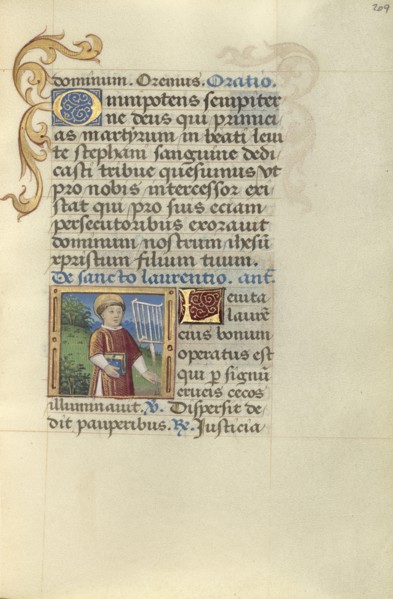 209
dominum. Oremus. Oratio.
Omnipotens sempiter
ne deus qui primici
as martyrum in beati leui
te stephani sanguine dedi
casti tribue quesumus vt
pro nobis intercessor exi
stat qui pro suis eciam
persecutoribus exorauit
dominum nostrum ihesū
xpristum filium tuum.
De sancto laurentio. ant.
Leuita
laurē
cius bonum
operatus est
qui p signū
crucis cecos
illuminauit. V. Dispersit de
dit pauperibus. R. Justicia